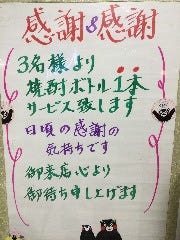 感謝&感謝
3名様より
焼酎ボトル1本
サービス致します
日頃の感謝の
気持ちです
御来店心より
御待ち申し上げます